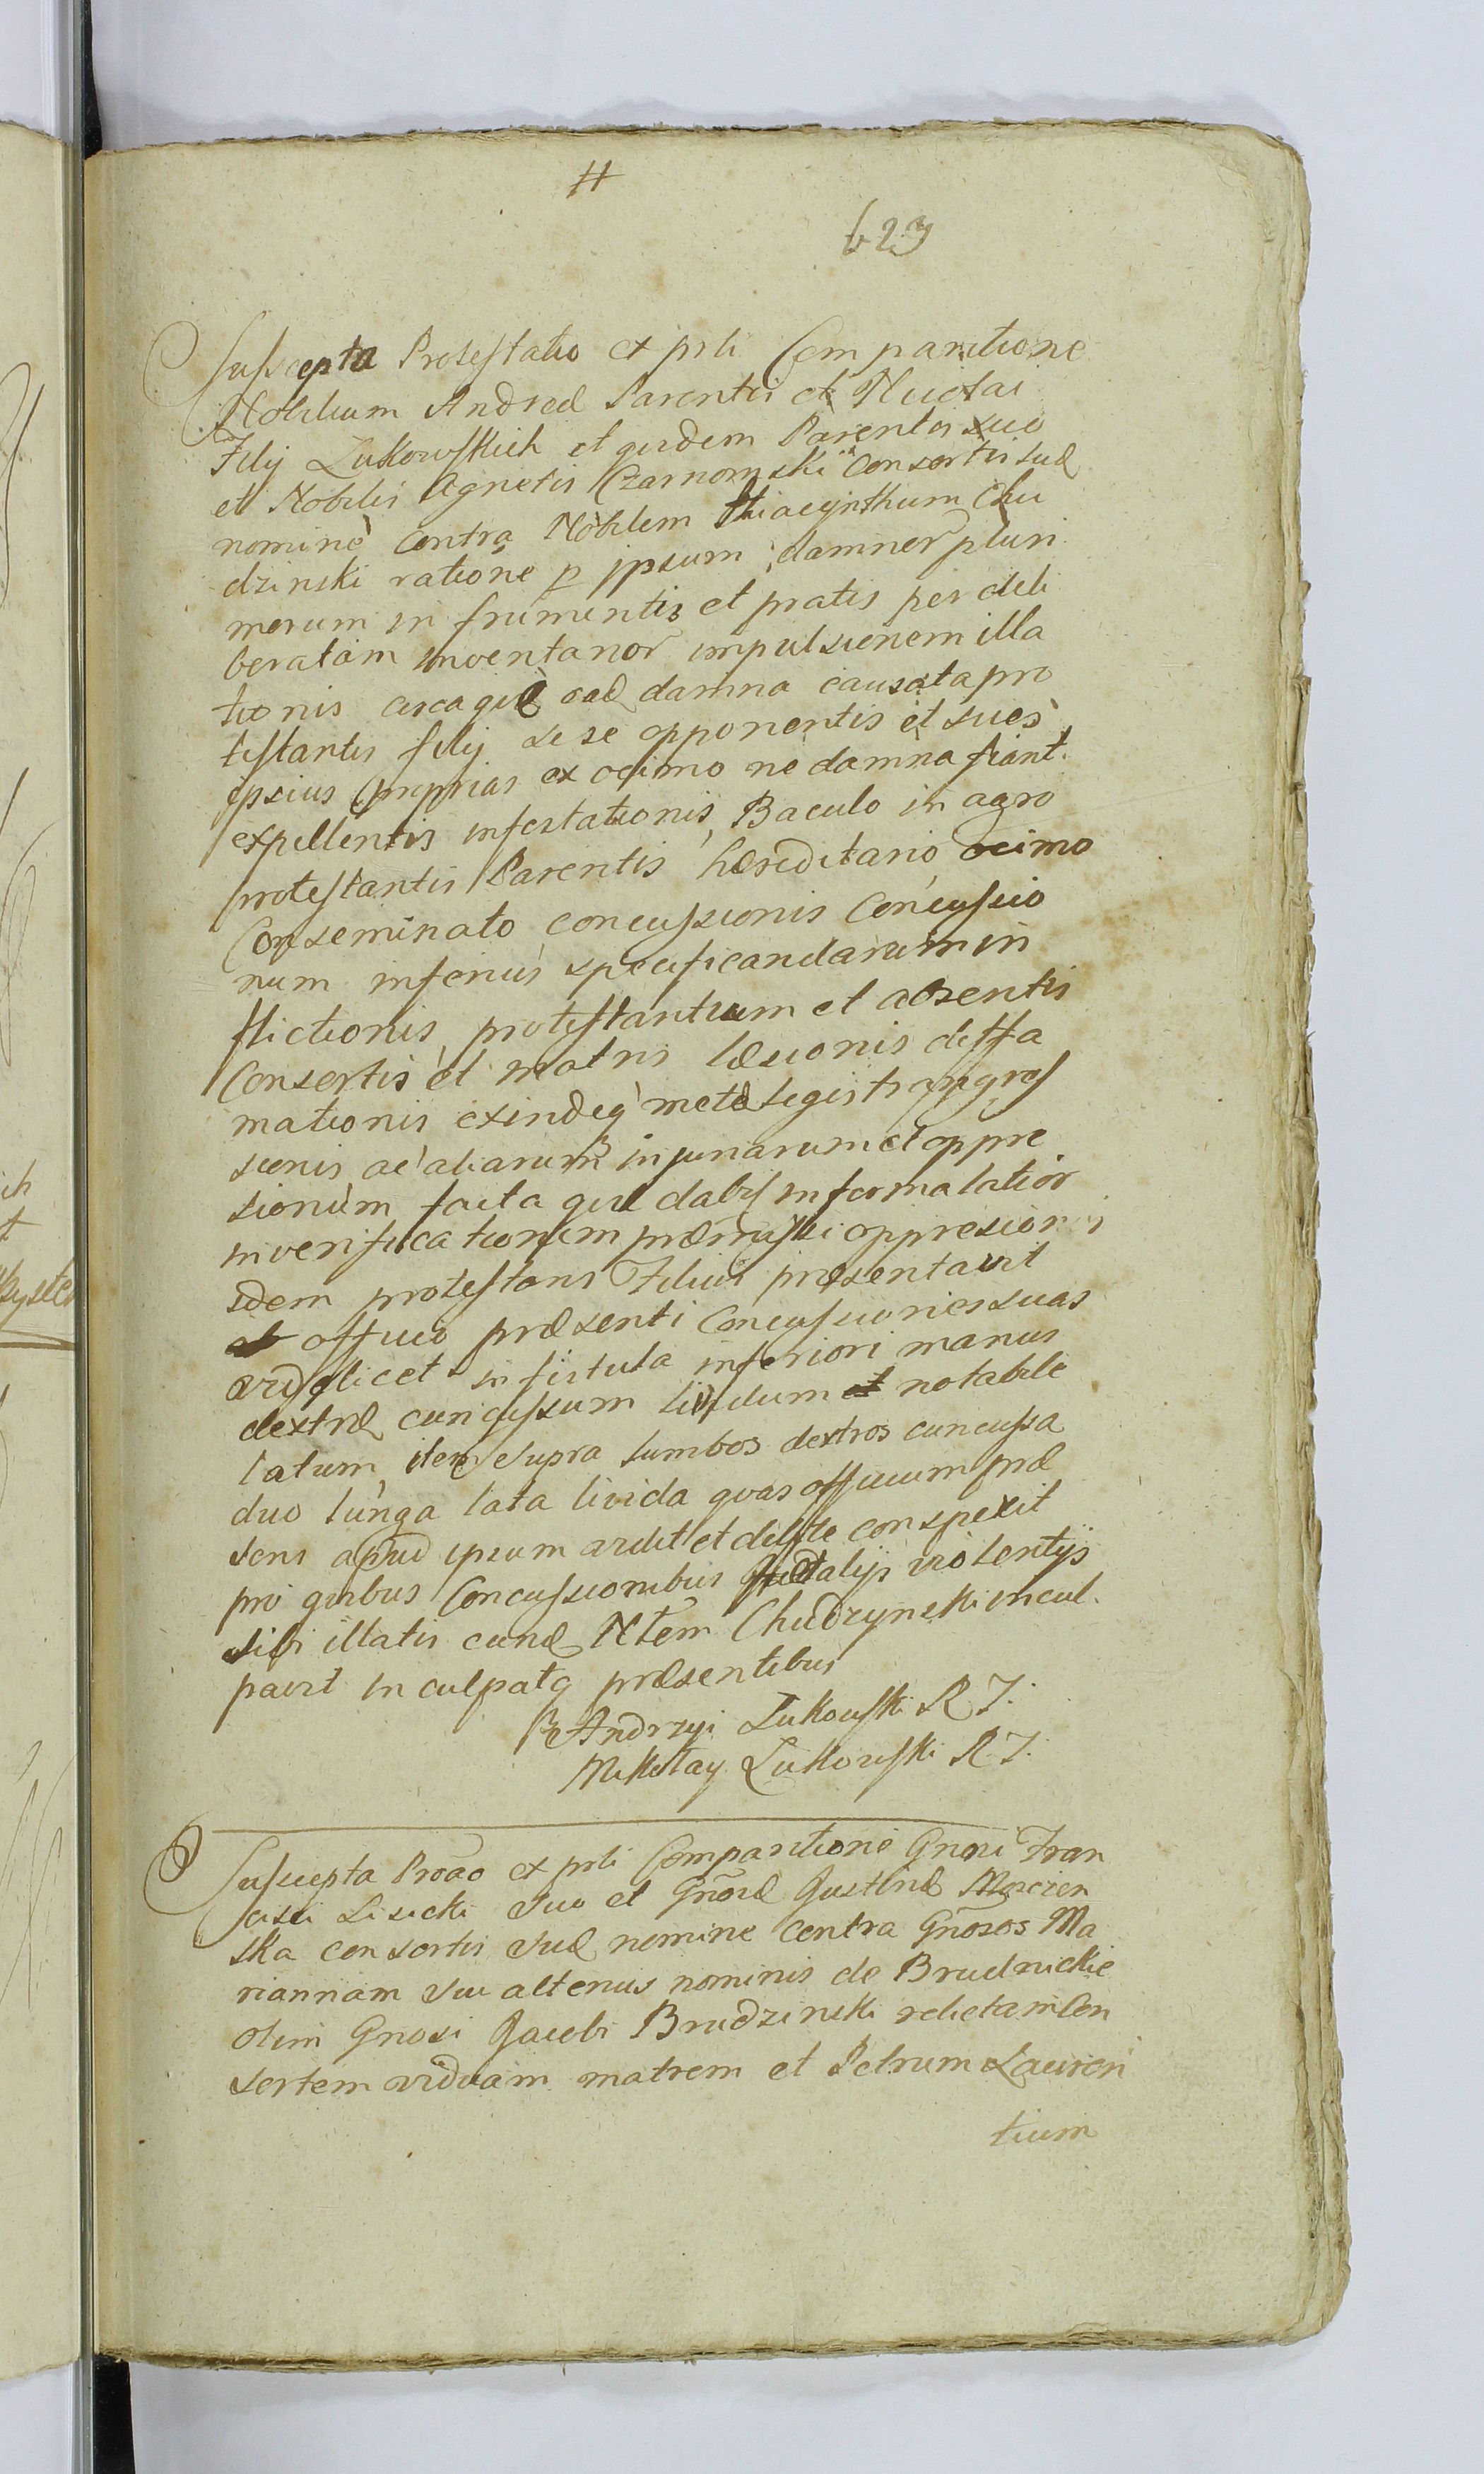 #
623
Suscepta Protestatio ex prti Comparitione
Nobilium Andreæ Parentis et Nicolai
Filij Łukowskich et quidem Parentis suo
et Nobilis Agnetis Czarnomski Consortis suæ
nominè contra Nobilem Hiacynthum Chu
dzinski ratione p ipsum damnor pluri
morum in frumentis et pratis per deli
beratam inventanor impulsionem illa
tionis circaque ead damna causata pro
testantis filij sese opponentis et sues
ipsius proprias ex ocimo ne damna fiant
expellentis infestationis, Baculo in agro
protestantis Parentis hæreditario ocimo
Conseminato concussionis Concussio
num inferius specificandarum in
flictionis, protestantium et absentis
Consortis et matris læsionis diffa
mationis exindeq metæ legis transgres
sionis ac aliarum injuriarum et oppre
sionum facta quæ dabit informa latior
in verificationem præmissi oppresionis
idem protestans Filius præsentavit
officio præsenti Concussiones suas
videlicet in fistula inferiori manus
dextræ concussum lividum et notabile
latum, item supra lumbos dextros concussa
duo lunga lata livida quas officium præ
sens apud ipsum vidit et conspexit
pro quibus Concussionibus alijs violentijs
sibi illatis eund Nlem Chudzynski incul
pavit inculpatq præsentibus
Andrzyi Łukowski R J.
Mikołay Łukowski R. J.
Suscepta Proao ex prti Comparitione Gnosi Fran
cisci Lisicki suo et Gnosæ Justinæ
ska consortis suæ nomine contra Gnosos Ma
riannam sui alterius nominis de Brudnickie
olim Gnosi Jacobi Brudzinski relictam Con
sortem viduam matrem et Petrum Lauren
tium